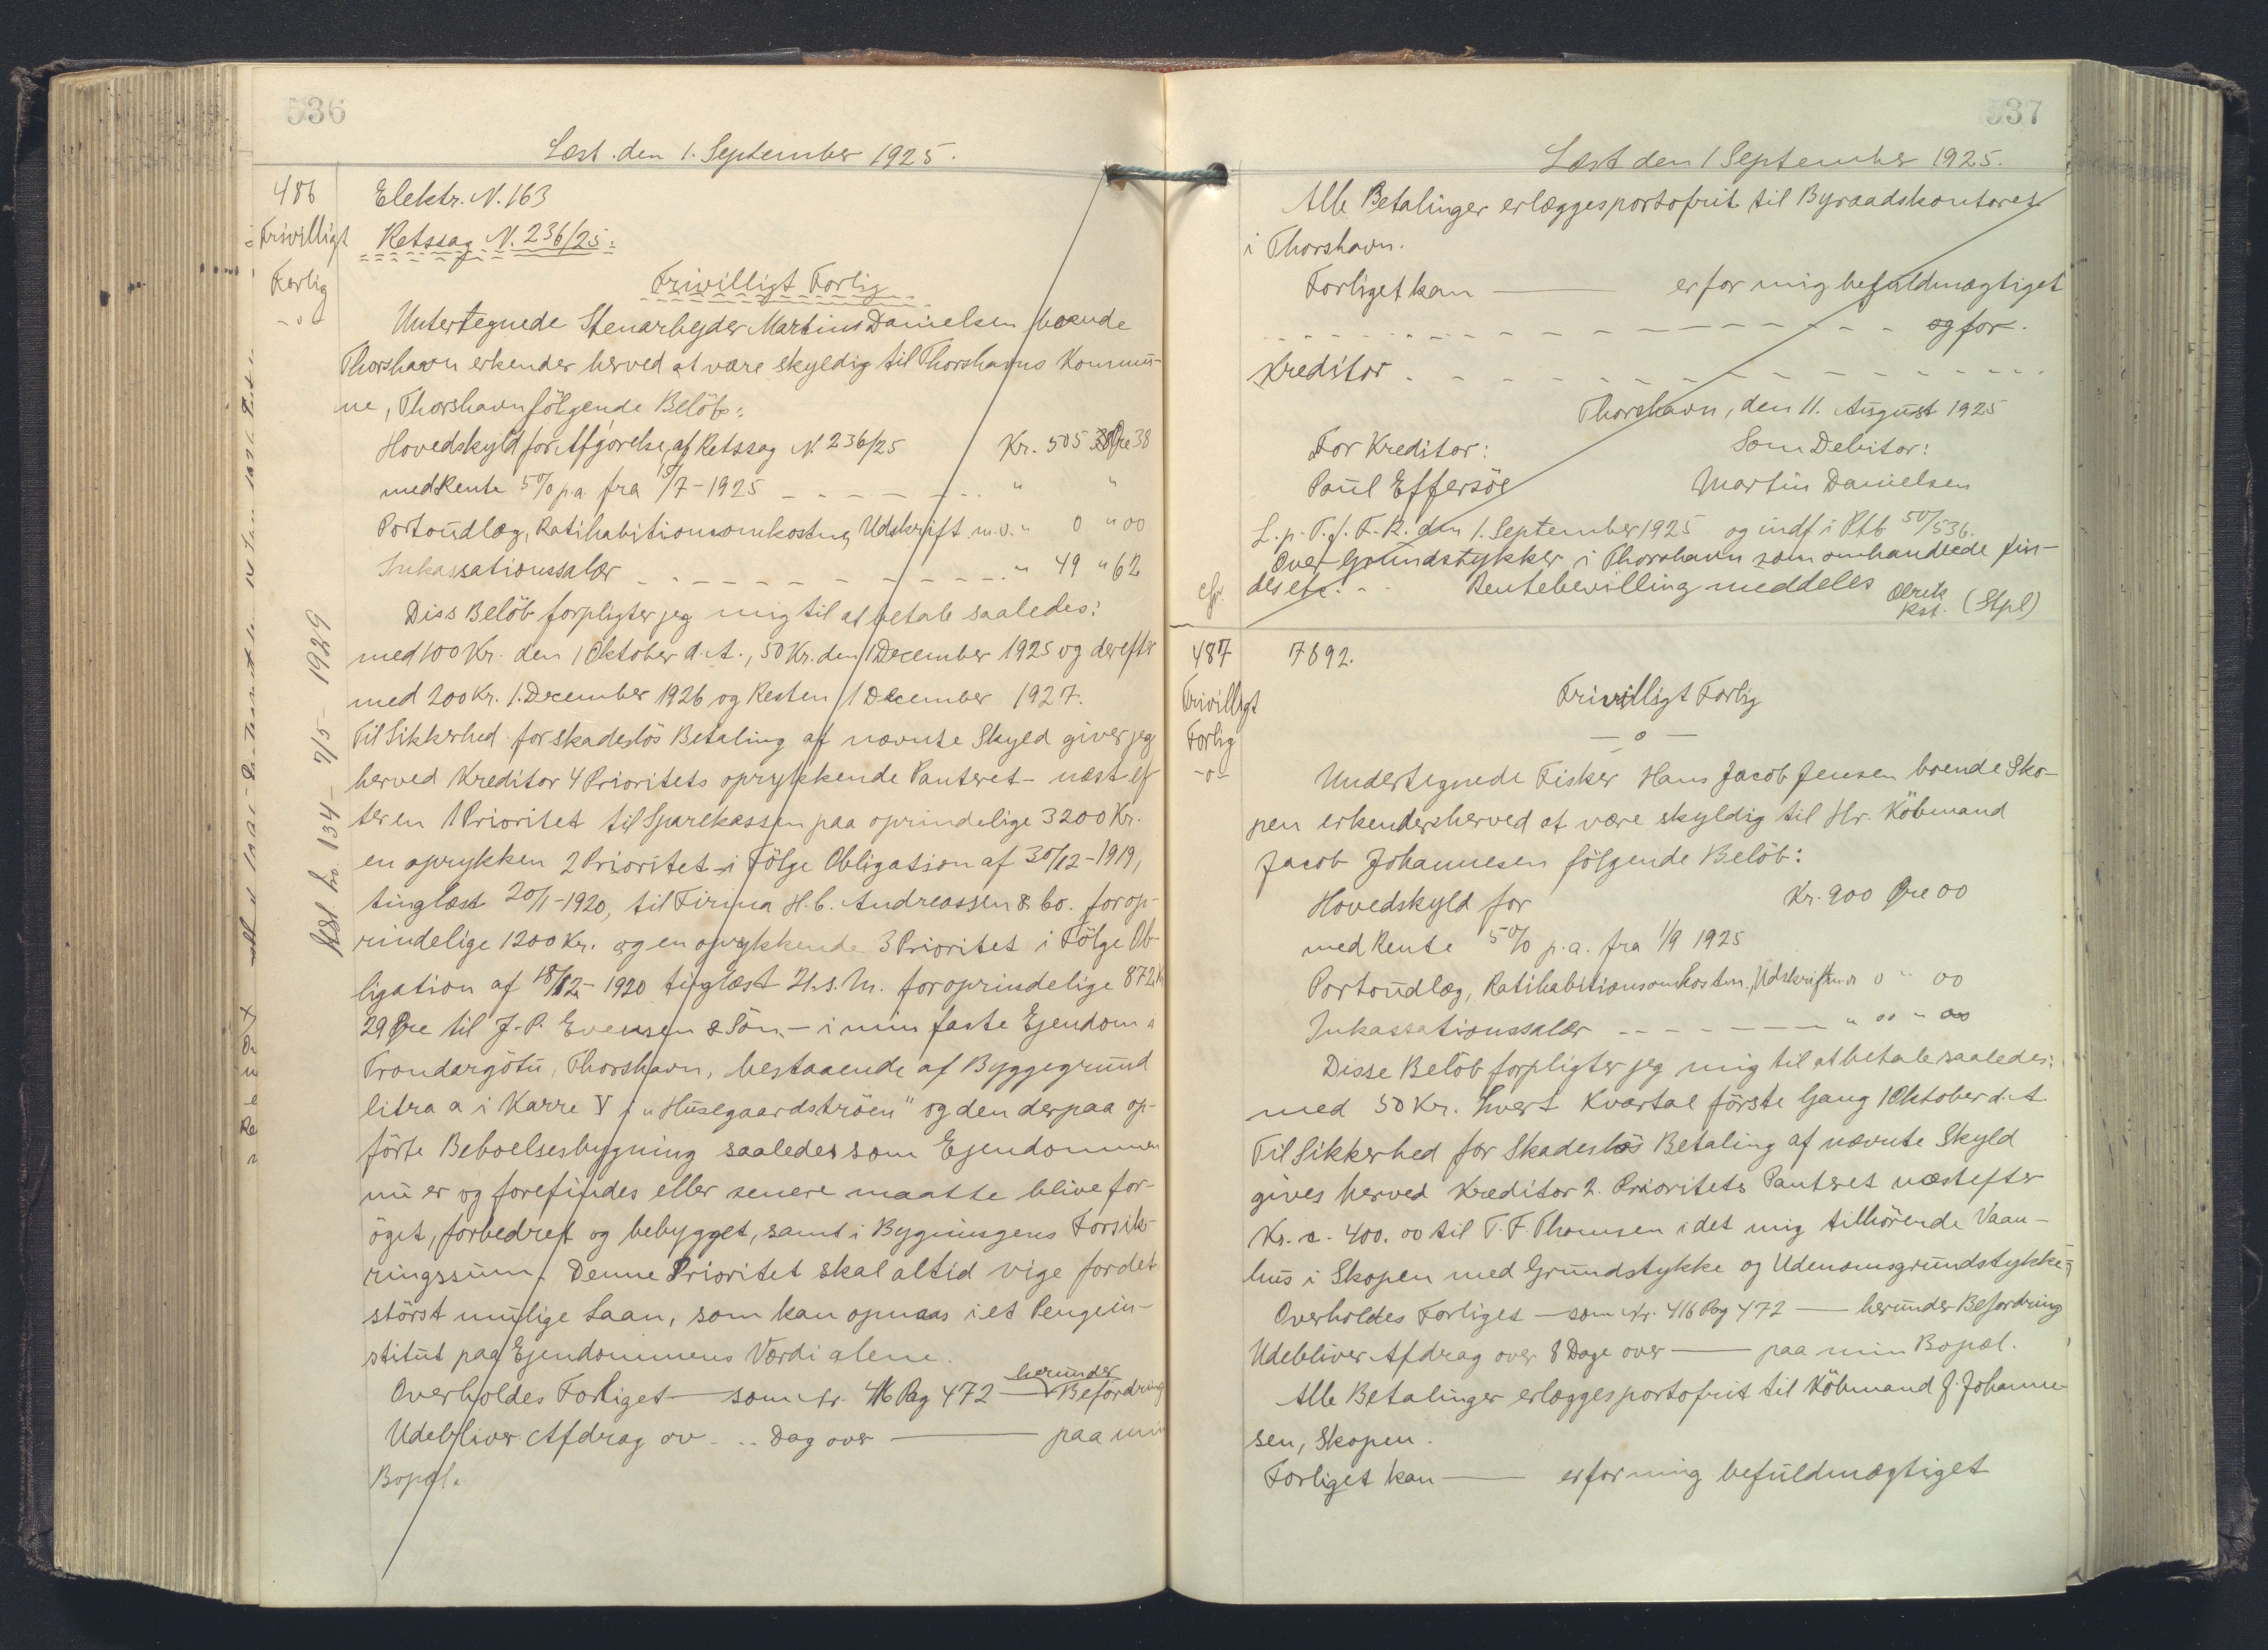 536
Læst den 1. September 1925.
486
Frivilligt
Forlig
-o-
Elektr. N. 163
Retssag N. 236/25:
Frivilligt Forlig
Untertegnede Stenarbejder Martins Danielsen boende
Thorshavn erkender herved at være skyldig til Thorshavns Kommu-
ne, Thorshavn følgende Beløb:
Hovedskyld for Afgjørelse af Retssag N. 236/25 Kr. 505 Øre 38
med Rente 5% p.a. fra /7-1925 - - - - - - - " "
Portoudlæg, Ratihabitionsomkostn, Udskrift m.v. " 0 " 00
Inkassationssalær - - - - - - - - - - - " 49 " 62
Diss Beløb forpligter jeg mig til at betale saaledes:
med 100 Kr. den 1 Oktober d. A., 50 Kr. den 1 December 1925 og derefter
med 200 Kr. 1. December 1926 og Resten 1 December 1927.
Til Sikkerhed for skadesløs Betaling af nævnte Skyld giver jeg
herved Kreditor 4 Prioritets oprykkende Panteret - næst ef
ter en 1 Prioritet til Sparekassen paa oprindelige 3200 Kr.
en oprykken 2 Prioritet i Følge Obligation af 30/12-1919,
tinglæst 20/1-1920, til Firma H. C. Andreassen & Co. for op-
rindelige 1200 Kr. og en oprykkende 3 Prioritet i Følge Ob-
ligation af 18/12-1920 tinglæst 21. s. M. for oprindelige 872 Kr
29 Øre til J. P. Evensen & Søn, - i min faste Ejendom i
Trondargøtu, Thorshavn, bestaaende af Byggegrund
litra a i Karre V i "Husegaardstrøen" og den derpaa op-
førte Beboelsesbygning saaledes som Ejendommen
nu er og forefindes eller senere maatte blive for-
øget, forbedret og bebygget, samt i Bygningens Forsik-
ringssum. Denne Prioritet skal altid vige for det
størst mulige Laan, som kan opnaas i et Pengein-
stitut paa Ejendommens Værdi alene.
Overholdes Forliget — som Nr. 416 Pag 472 — herunder Befordring
Udebliver Afdrag ov - .. Dag over ——— paa min
Bopæl.
134 - 7/5 - 1929
537
Læst den 1 September 1925.
Alle Betalinger erlægges portofrit til Byraadskontoret
i Thorshavn.
Forliget kan ——— er for mig befuldmægtiget
- - - - - - - - - - - - - - - og for.
Kreditor - - - - - - - - - - - - - -
Thorshavn, den 11. August 1925
For Kreditor: Som Debitor:
Poul Effersøe Martin Danielsen
L. p. T. f. F. R. den 1. September 1925 og indf i Ptb 50/536.
Over Grundstykker i Thorshavn som omhandlede fin-
des etc. - - Rentebevilling meddeles Ølrik
Kst. (Stpl)
cfr.
487
Frivilligt
Forlig
-o-
7892.
Frivilligt Forlig
- o -
Undertegnede Fisker Hans Jacob Jensen boende Sko-
pen erkender herved at være skyldig til Hr. Købmand
Jacob Johannesen følgende Beløb:
Hovedskyld for Kr. 900 Øre 00
med Rente 5% p.a. fra 1/9 1925
Portoudlæg, Ratihabitionsomkostn. Udskrift m.v 0 " 00
Inkassationssalær - - - - - - - " 00 " 00
Disse Beløb forpligter jeg mig til at betale saaledes:
med 50 Kr. hvert Kvartal første Gang 1 Oktober d. A.
Til Sikkerhed for Skadesløs Betaling af nævnte Skyld
gives herved Kreditor 2. Prioritets Panteret næstefter
Kr. c. 400.00 til T. F. Thomsen i det mig tilhørende Vaan-
hus i Skopen med Grundstykke og Udenomsgrundstykke;
Overholdes Forliget — som Nr. 416 Pag 472 — herunder Befordring
Udebliver Afdrag over 8 Dage over ——— paa min Bopæl.
Alle Betalinger erlægges portofrit til Købmand J. Johanne-
sen, Skopen.
Forliget kan ——— er for mig befuldmægtiget